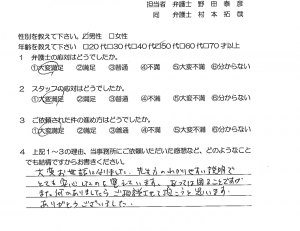 担当者 弁護士 野田泰彦
同 弁護士 村本拓哉
性別を教えて下さい。 ☑男性 □女性
年齢を教えて下さい □20代□30代□40代☑50代□60代□70才以上
1 弁護士の応対はどうでしたか。
①大変満足 ②満足 ③普通 ④不満 ⑤大変不満 ⑥分からない
2 スタッフの応対はどうでしたか。
①大変満足 ②満足 ③普通 ④不満 ⑤大変不満 ⑥分からない
3 ご依頼された件の進め方はどうでしたか。
①大変満足 ②満足 ③普通 ④不満 ⑤大変不満 ⑥分からない
4 上記1~3の理由、当事務所にご依頼いただいた感想など、どのようなこと
でも結構ですからお書きください。
大変お世話になりました。先生方のわかりやすい説明で
とても安心したのを覚えています。
また何かありましたらご相談させて頂こうと思います。
ありがとうございました。